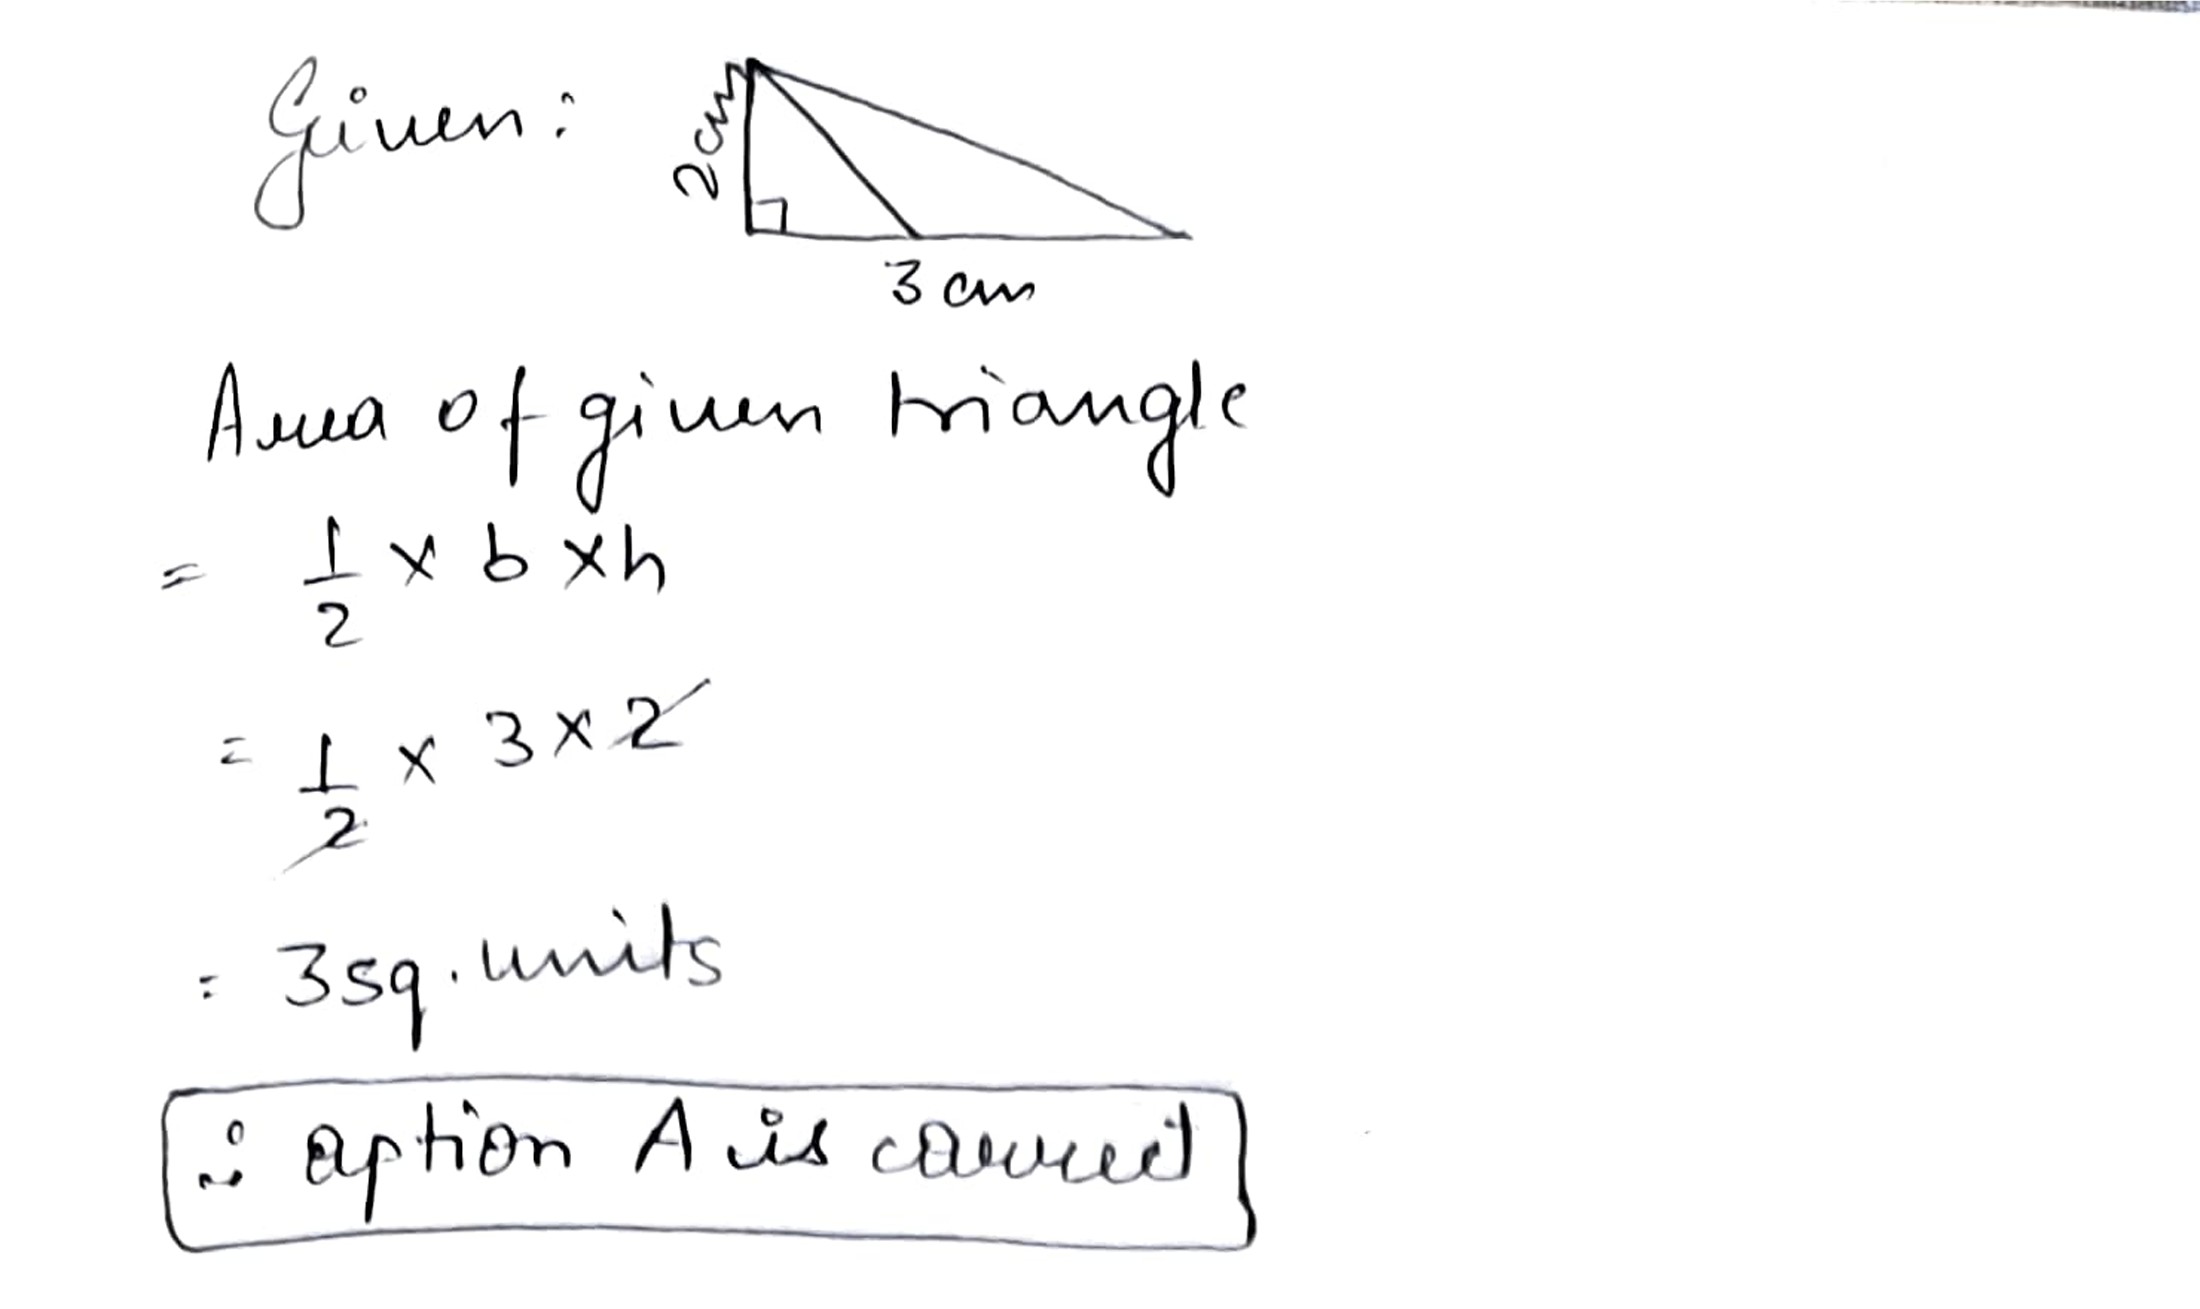 Given:
2cm
3 cm
Area of given triangle
= 1/2 × b × h
= 1/2 × 3 × 2
= 3sq. units
∴ option A is correct